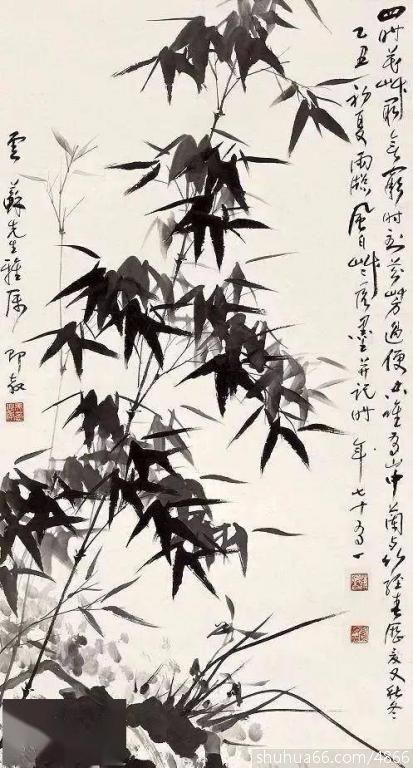 四时花草最无穷时到芬芳过便空唯有山中蘭与竹经春歷夏又秋冬
乙丑初夏雨牕風日墨并记时年七十有一
雲蘇先生雅属即教
shuhua66.com/4866